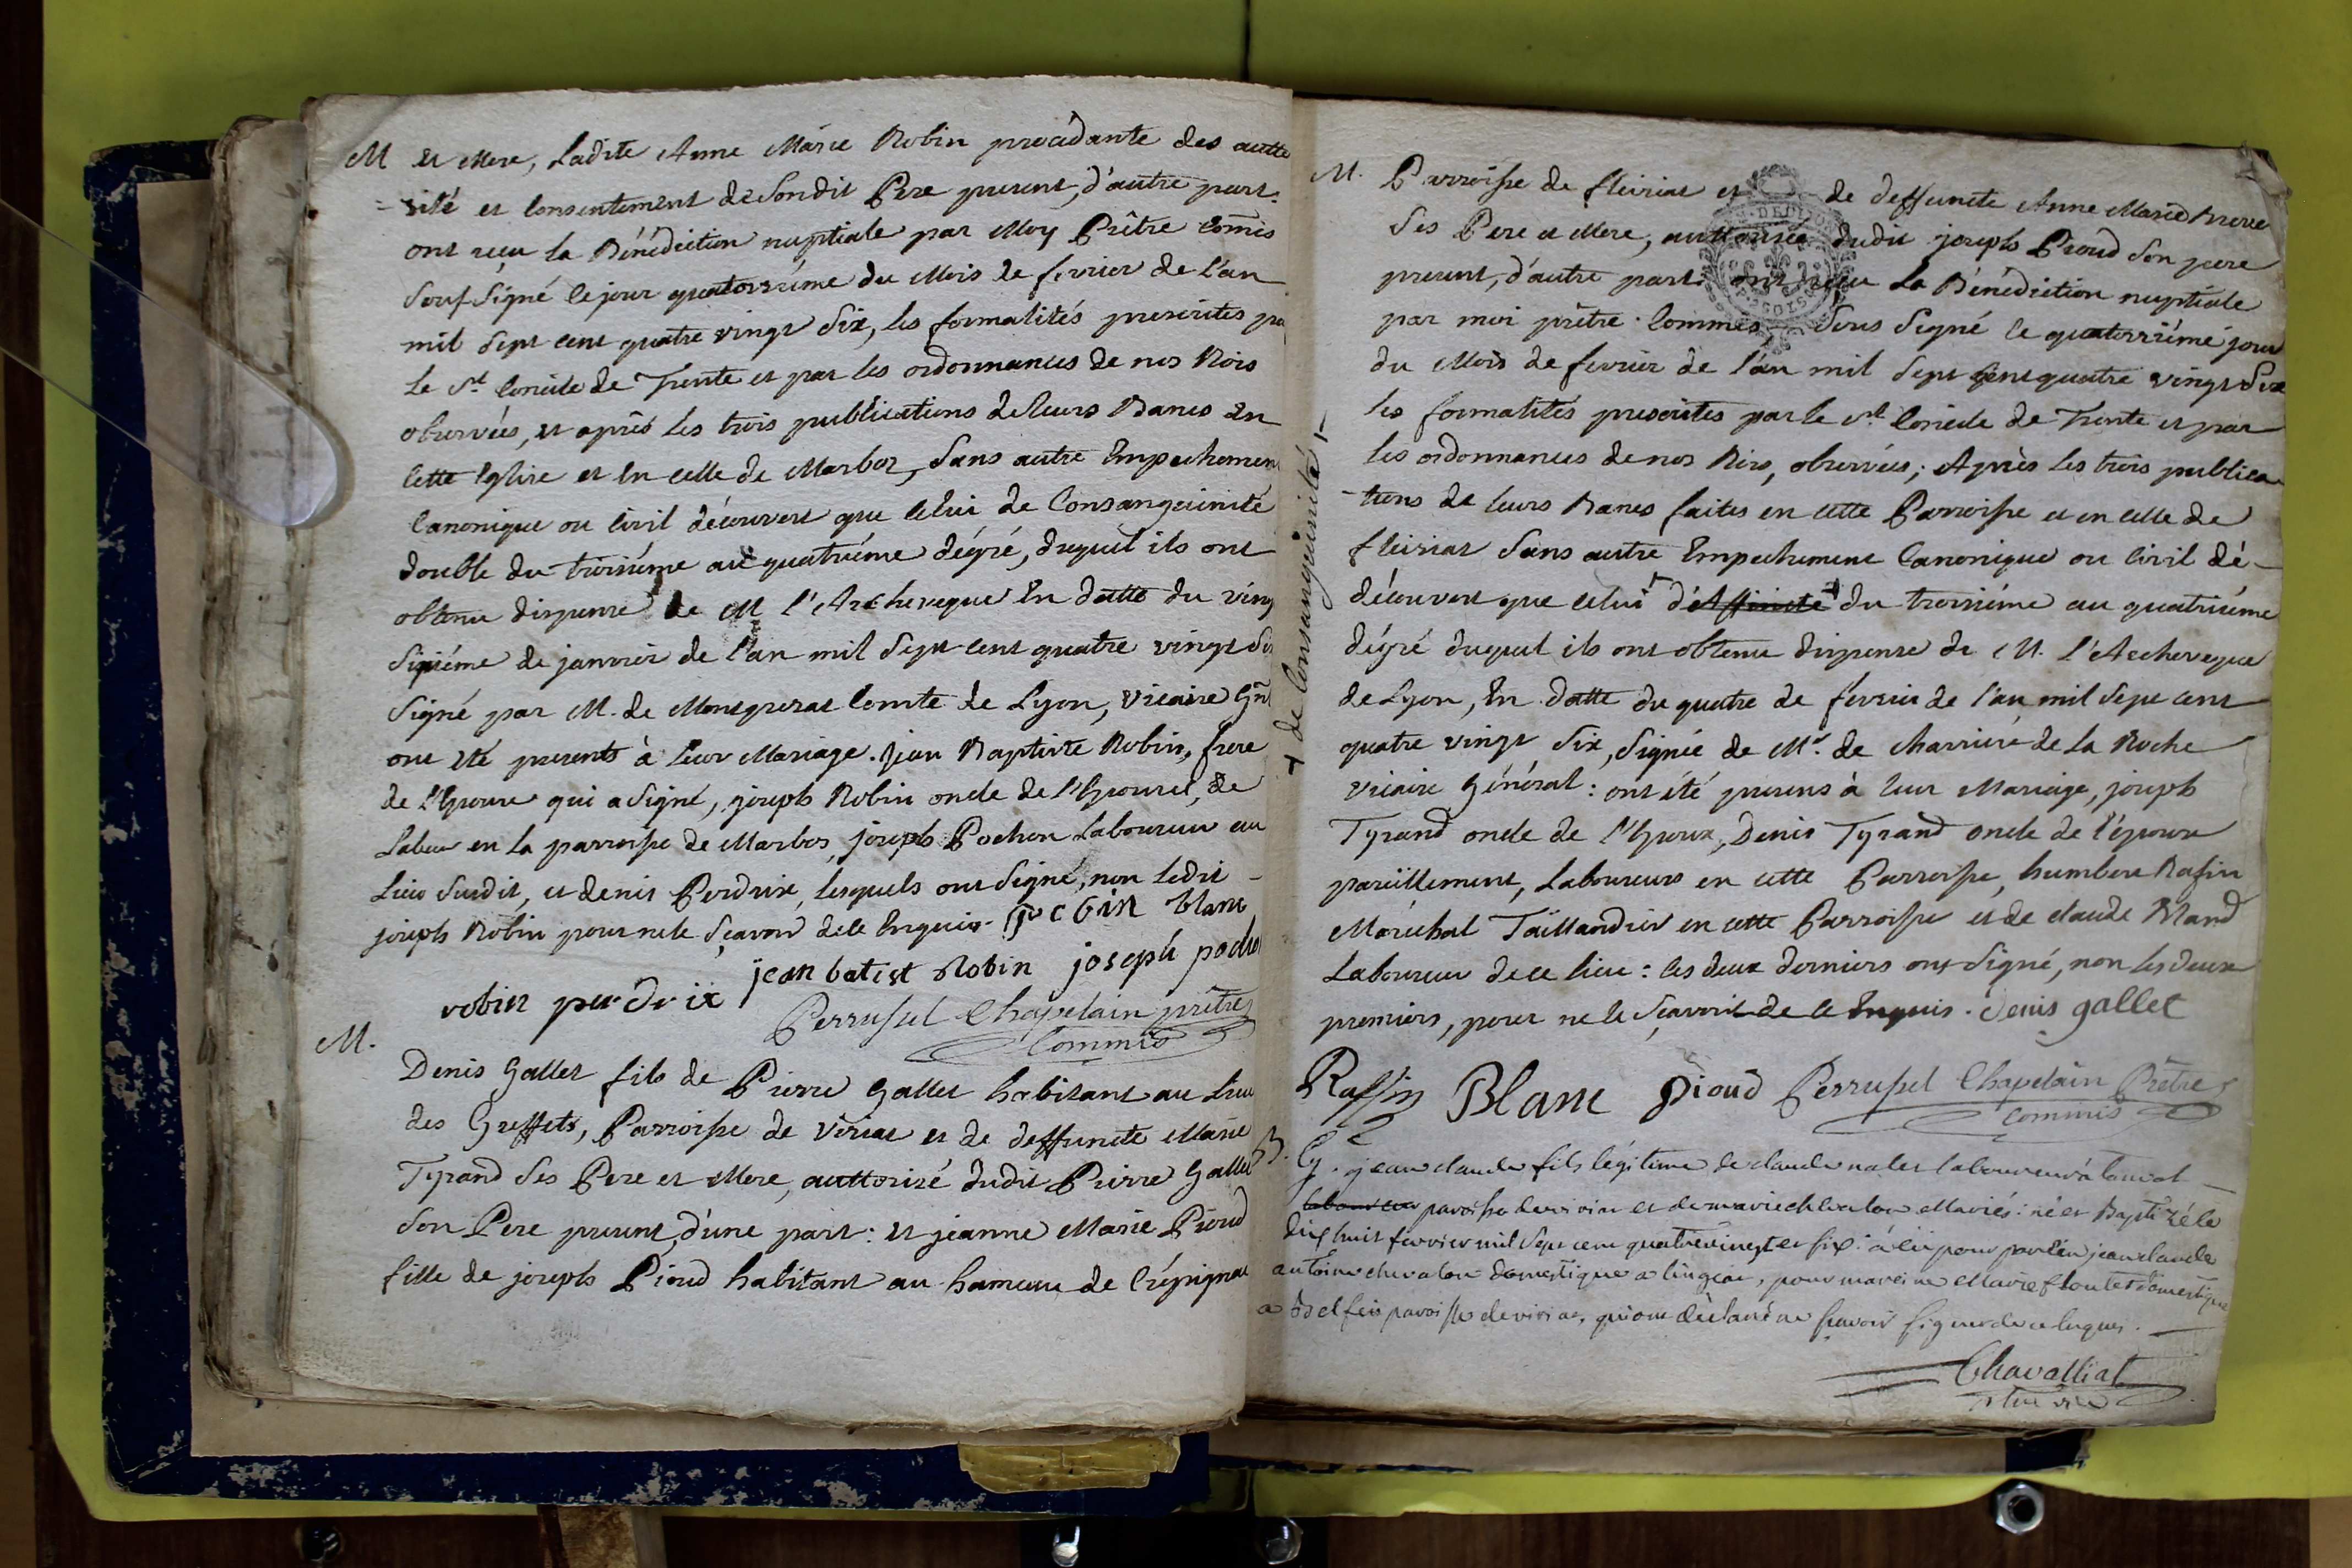 M et Mere, Ladite Anne Marie Robin procédante des autto
-rité et Consentement de Sondit Pere present, d'autre part.
ont reçu la Bénédiction nuptiale par Moy Prêtre Comis
Souf Signé le jour quatorziéme du Mois de fevrier de l'an
mil Sept cent quatre vingt Six, les formalités prescrites pa
Le St Concile de Trente et par les ordonnances de nos Rois
observées, et après les trois publications de leurs Bancs En
Cette Eglise et En celle de Marboz, Sans autre Empechement
Canonique ou Civil découvert que Celui de Consanguinité
double du troisiéme au quatriéme dégré, duquel ils ont
obtenu dispense de M l'Archeveque En datte du ving
Sixiéme de janvier de l'an mil Sept cent quatre vingt Six
Signé par M. de Montgrerat Comte de Lyon, Vicaire Gñl
ont été presents à leur Mariage. Jean Baptiste Robin, frere
de l'Epouse qui a Signé, joseph Robin oncle de l'Epouse, de
en La parroisse de Marbos, joseph Pochon Laboureur au
Lieu Susdit, et denis Perdrix, lesquels ont Signé, non ledit
joseph Robin pour ne le Sçavoir de ce Enquis. robin blanc
jean batist Robin joseph pocho
robin perdrix
Perrussel Chapelain prêtre
Commis
M.
Denis Gallet fils de Pierre Gallet habitant au Lieu
des Greffets, Parroisse de Viriat et de deffuncte Marie
Tyrand Ses Pere et Mere, authorisé dudit Pierre Gallet
Son Pere present, d'une part: et jeanne Marie Pioud
fille de joseph Pioud habitant au hameau de Crépignat
M. Parroisse de fleiriat et de deffuncte Anne Marie
Ses Pere et Mere, authorisée dudit joseph Pioud Son pere
present, d'autre part: ont reçu La Bénédiction nuptiale
par moi prêtre Commis Sous Signé le quatorziéme jour
du Mois de fevrier de l'an mil Sept Cent quatre vingt Six
les formalités prescrites par le St. Concile de Trente et par
les ordonnances de nos Rois, observées; Après les trois publica
-tions de leurs Bancs faites en cette Parroisse et en celle de
fleiriat Sans autre Empechement Canonique ou Civil dé-
découvert que celui d'Affinité du troisiéme au quatriéme
+ de Consanguinité +
dégré duquel ils ont obtenu dispense de M. l'Archeveque
de Lyon, En datte du quatre de fevrier de l'an mil Sept cent
quatre vingt Six, Signée de Mr. de Charriere de La Roche
Vicaire Général: ont été presens à leur Mariage, joseph
Tyrand oncle de l'Epoux, Denis Tyrand oncle de l'époux
pareillement, Laboureurs en cette Parroisse, humbert Rafin
Maréchal Taillandier en cette Parroisse et de claude Bland
Laboureur de ce lieu: les deux derniers ont Signé, non les deux
premiers, pour ne le Sçavoir de ce Enquis. denis gallet
Raffin Blanc Pioud Perrussel Chapelain Prêtre
Commis
B. jean claude fils légitime de claude nalet laboureur à
laboureur paroisse de viriat et de marie chevalon Mariés: né et Baptizé le
dix huit fevrier mil Sept cent quatre vingt et six: a eû pour parrein jean claude
antoine chevalon domestique a lingeat, pour mareine Marie floutet domestique
a paroisse de viriat, qui ont déclaré ne sçavoir signer de ce Enquis.
Chavalliat